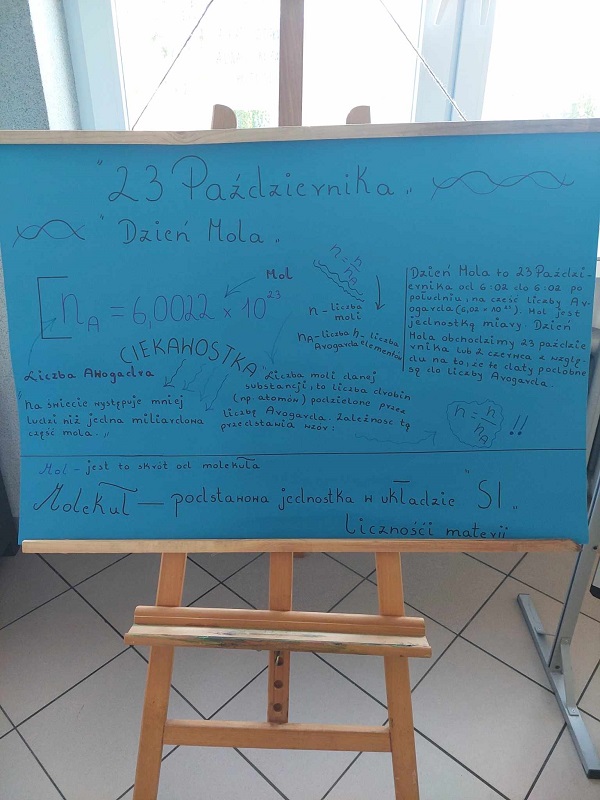 " 23 Października "
" Dzień Mola "
[ nA = 6,0022 × 10 23
Mol
Liczba Awogadra
n = h/hA
n - liczba
moli
nA - liczba
Avogarda
h - liczba
elementów
Dzień Mola to 23 Paździ-
ernika od 6:02 do 6:02 po
południu, na cześć liczby Av-
ogarda (6,02 × 10 23). Mol jest
jednostką miary. Dzień
Mola obchodzimy 23 paździe
rnika lub 2 czerwca z wzglę-
du na to, że te daty podobne
są do liczby Avogarda.
CIEKAWOSTKA
"Na świecie występuje mniej
ludzi niż jedna miliardowa
część mola."
"Liczba moli danej
substancji, to liczba drobin
(np. atomów) podzielone przez
liczbę Avogarda. Zależnosc tę
przedstawia wzór:
n = h/hA !!
Mol - jest to skrót od molekuła
Molekuł — podstawowa jednostka w układzie "SI"
Licznośći materii